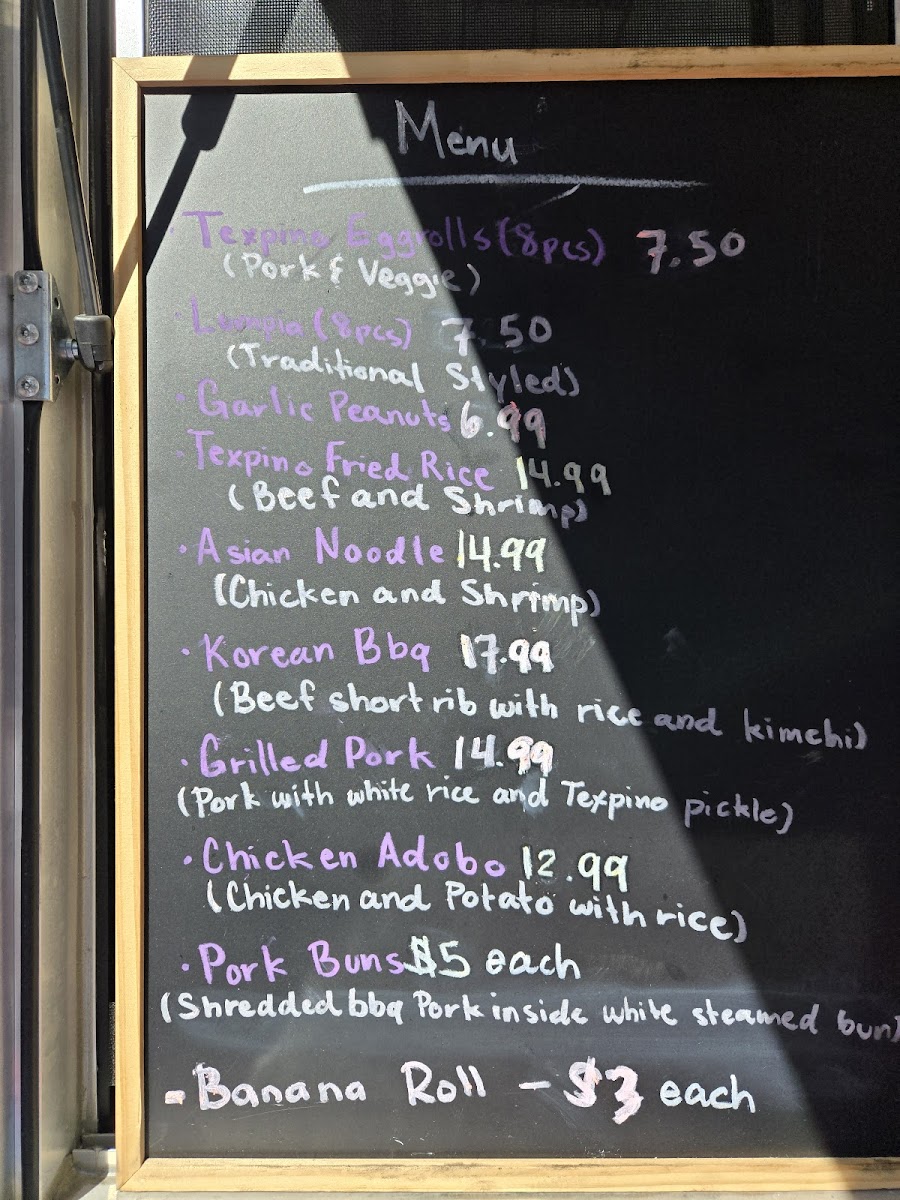 Menu
· Texpino Eggrolls (8pcs) 7.50
(Pork & Veggie)
· Lumpia (8pcs) 7.50
(Traditional Styled)
· Garlic Peanuts 6.99
· Texpino Fried Rice 14.99
(Beef and Shrimp)
· Asian Noodle 14.99
(Chicken and Shrimp)
· Korean Bbq 17.99
(Beef short rib with rice and kimchi)
· Grilled Pork 14.99
(Pork with white rice and Texpino pickle)
· Chicken Adobo 12.99
(Chicken and Potato with rice)
· Pork Buns $5 each
(Shredded bbq Pork inside white steamed bun)
- Banana Roll - $3 each